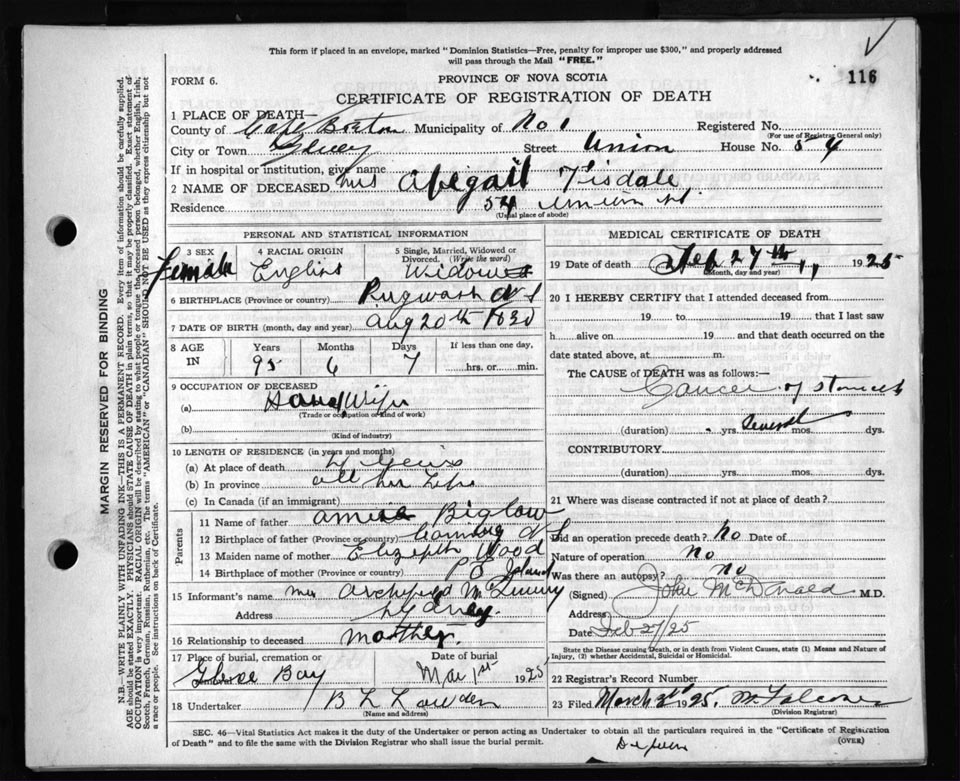 This form if placed in an envelope, marked "Dominion Statistics—Free, penalty for improper use $300," and properly addressed
will pass through the Mail "FREE."
FORM 6.
PROVINCE OF NOVA SCOTIA
116
CERTIFICATE OF REGISTRATION OF DEATH
1 PLACE OF DEATH—
County of Cape Breton Municipality of No 1 Registered No.
(For use of Registrar General only)
City or Town Street Union House No. 54
If in hospital or institution, give name
2 NAME OF DECEASED Mrs Abegail Tisdale
Residence 54 Union St
(Usual place of abode)
PERSONAL AND STATISTICAL INFORMATION
3 SEX 4 RACIAL ORIGIN 5 Single, Married, Widowed or Divorced. (Write the word)
Female English Widow
6 BIRTHPLACE (Province or country) Pugwash N S
7 DATE OF BIRTH (month, day and year) Aug 20th 1830
8 AGE IN Years Months Days If less than one day,
95 6 7 hrs. or min.
9 OCCUPATION OF DECEASED
(a) House Wife
(Trade or occupation or kind of work)
(b)
(Kind of industry)
10 LENGTH OF RESIDENCE (in years and months)
(a) At place of death
(b) In province all her life
(c) In Canada (if an immigrant)
Parents
11 Name of father Biglow
12 Birthplace of father (Province or country) N S
13 Maiden name of mother Elizabeth Wood
14 Birthplace of mother (Province or country) P E Island
15 Informant's name Mrs Archibald
Address Sydney
16 Relationship to deceased Mother
17 Place of burial, cremation or removal Date of burial
Glace Bay Mar 1st 1925
18 Undertaker B L
(Name and address)
MEDICAL CERTIFICATE OF DEATH
19 Date of death Feb 27th 1925
(Month, day and year)
20 I HEREBY CERTIFY that I attended deceased from
19 to 19 that I last saw
h alive on 19 and that death occurred on the
date stated above, at m.
The CAUSE of DEATH was as follows:—
Cancer of stomach
(duration) yrs. several mos. dys.
CONTRIBUTORY
(duration) yrs. mos. dys.
21 Where was disease contracted if not at place of death?
Did an operation precede death? No Date of
Nature of operation no
Was there an autopsy? no
(Signed) John McDonald M.D.
Address
Date Feb 27/25
State the Disease causing Death, or in death from Violent Causes, state (1) Means and Nature of
Injury, (2) whether Accidental, Suicidal or Homicidal.
22 Registrar's Record Number
23 Filed March 1925.
(Division Registrar)
SEC. 46—Vital Statistics Act makes it the duty of the Undertaker or person acting as Undertaker to obtain all the particulars required in the "Certificate of Registration
of Death" and to file the same with the Division Registrar who shall issue the burial permit.
(OVER)
MARGIN RESERVED FOR BINDING
N.B.—WRITE PLAINLY WITH UNFADING INK—THIS IS A PERMANENT RECORD. Every item of information should be carefully supplied.
AGE should be stated EXACTLY. PHYSICIANS should STATE CAUSE OF DEATH in plain terms, so that it may be properly classified. Exact statement of
OCCUPATION is very important. RACIAL ORIGIN will be described by stating to what people or tongue the deceased person belonged, whether English, Irish,
Scotch, French, German, Russian, Ruthenian, etc. The terms "AMERICAN" or "CANADIAN" SHOULD NOT BE USED as they express citizenship but not
a race or people. See instructions on back of Certificate.